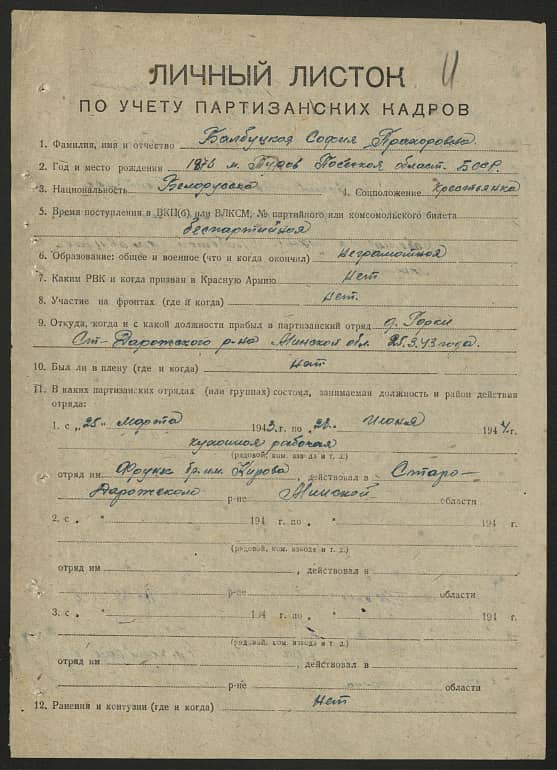 ЛИЧНЫЙ ЛИСТОК
ПО УЧЕТУ ПАРТИЗАНСКИХ КАДРОВ
1. Фамилия, имя и отчество Балбуцкая София Прохоровна
2. Год и место рождения 1876 м. Туров Полеской област. БССР.
3. Национальность Белорусска 4. Соцположение крестьянка
5. Время поступления в ВКП(б) или ВЛКСМ, № партийного или комсомольского билета
беспартийная
6. Образование: общее и военное (что и когда окончил) неграмотная
7. Каким РВК и когда призван в Красную Армию нет
8. Участие на фронтах (где и когда) нет.
9. Откуда, когда и с какой должности прибыл в партизанский отряд д. Горки
Ст-Дарожского р-на Минской обл. 25.3.43 года.
10. Был ли в плену (где и когда) нет
11. В каких партизанских отрядах (или группах) состоял, занимаемая должность и район действия
отряда:
1. с „25" марта 1943 г. по „28. июня 1944 г.
кухонная рабочая
(рядовой, ком. взвода и т. д.)
отряд им Фрунзе бр. им. Кирова, действовал в Старо-
Дарожском р-не Минской области
2. с „ " 194 г. по „ " 194 г.
(рядовой, ком. взвода и т. д.)
отряд им , действовал в
р-не области
3. с „ " 194 г. по „ " 194 г.
(рядовой, ком. взвода и т. д.)
отряд им , действовал в
р-не области
12. Ранения и контузии (где и когда) нет